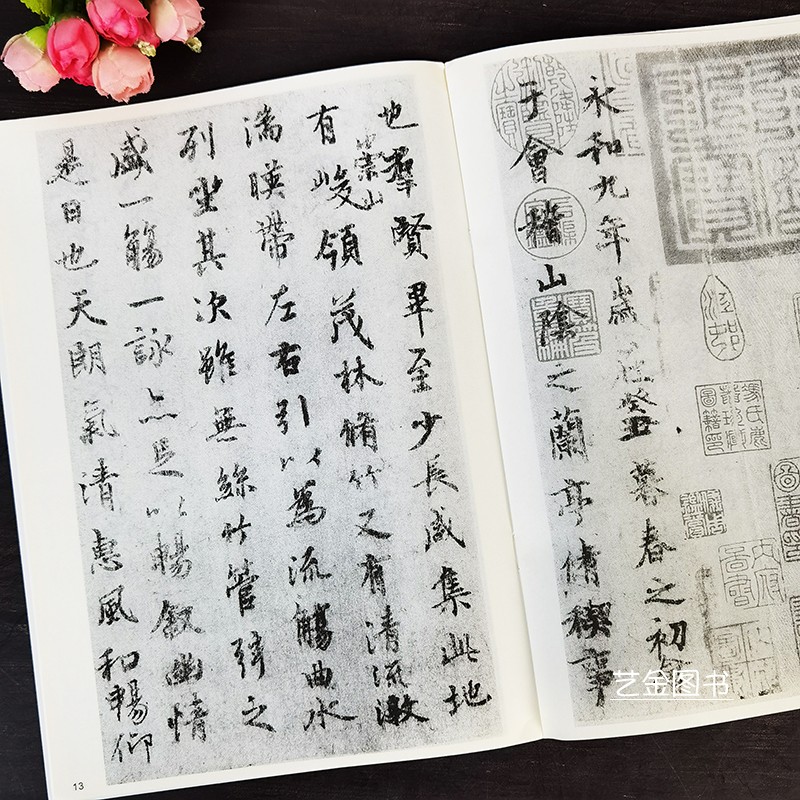 永和九年歲在癸丑暮春之初會
于會稽山陰之蘭亭脩稧事
也羣賢畢至少長咸集此地
有崇山峻領茂林脩竹又有清流激
湍暎帶左右引以為流觴曲水
列坐其次雖無絲竹管弦之
盛一觴一詠亦足以暢敘幽情
是日也天朗氣清惠風和暢仰
13
艺金图书